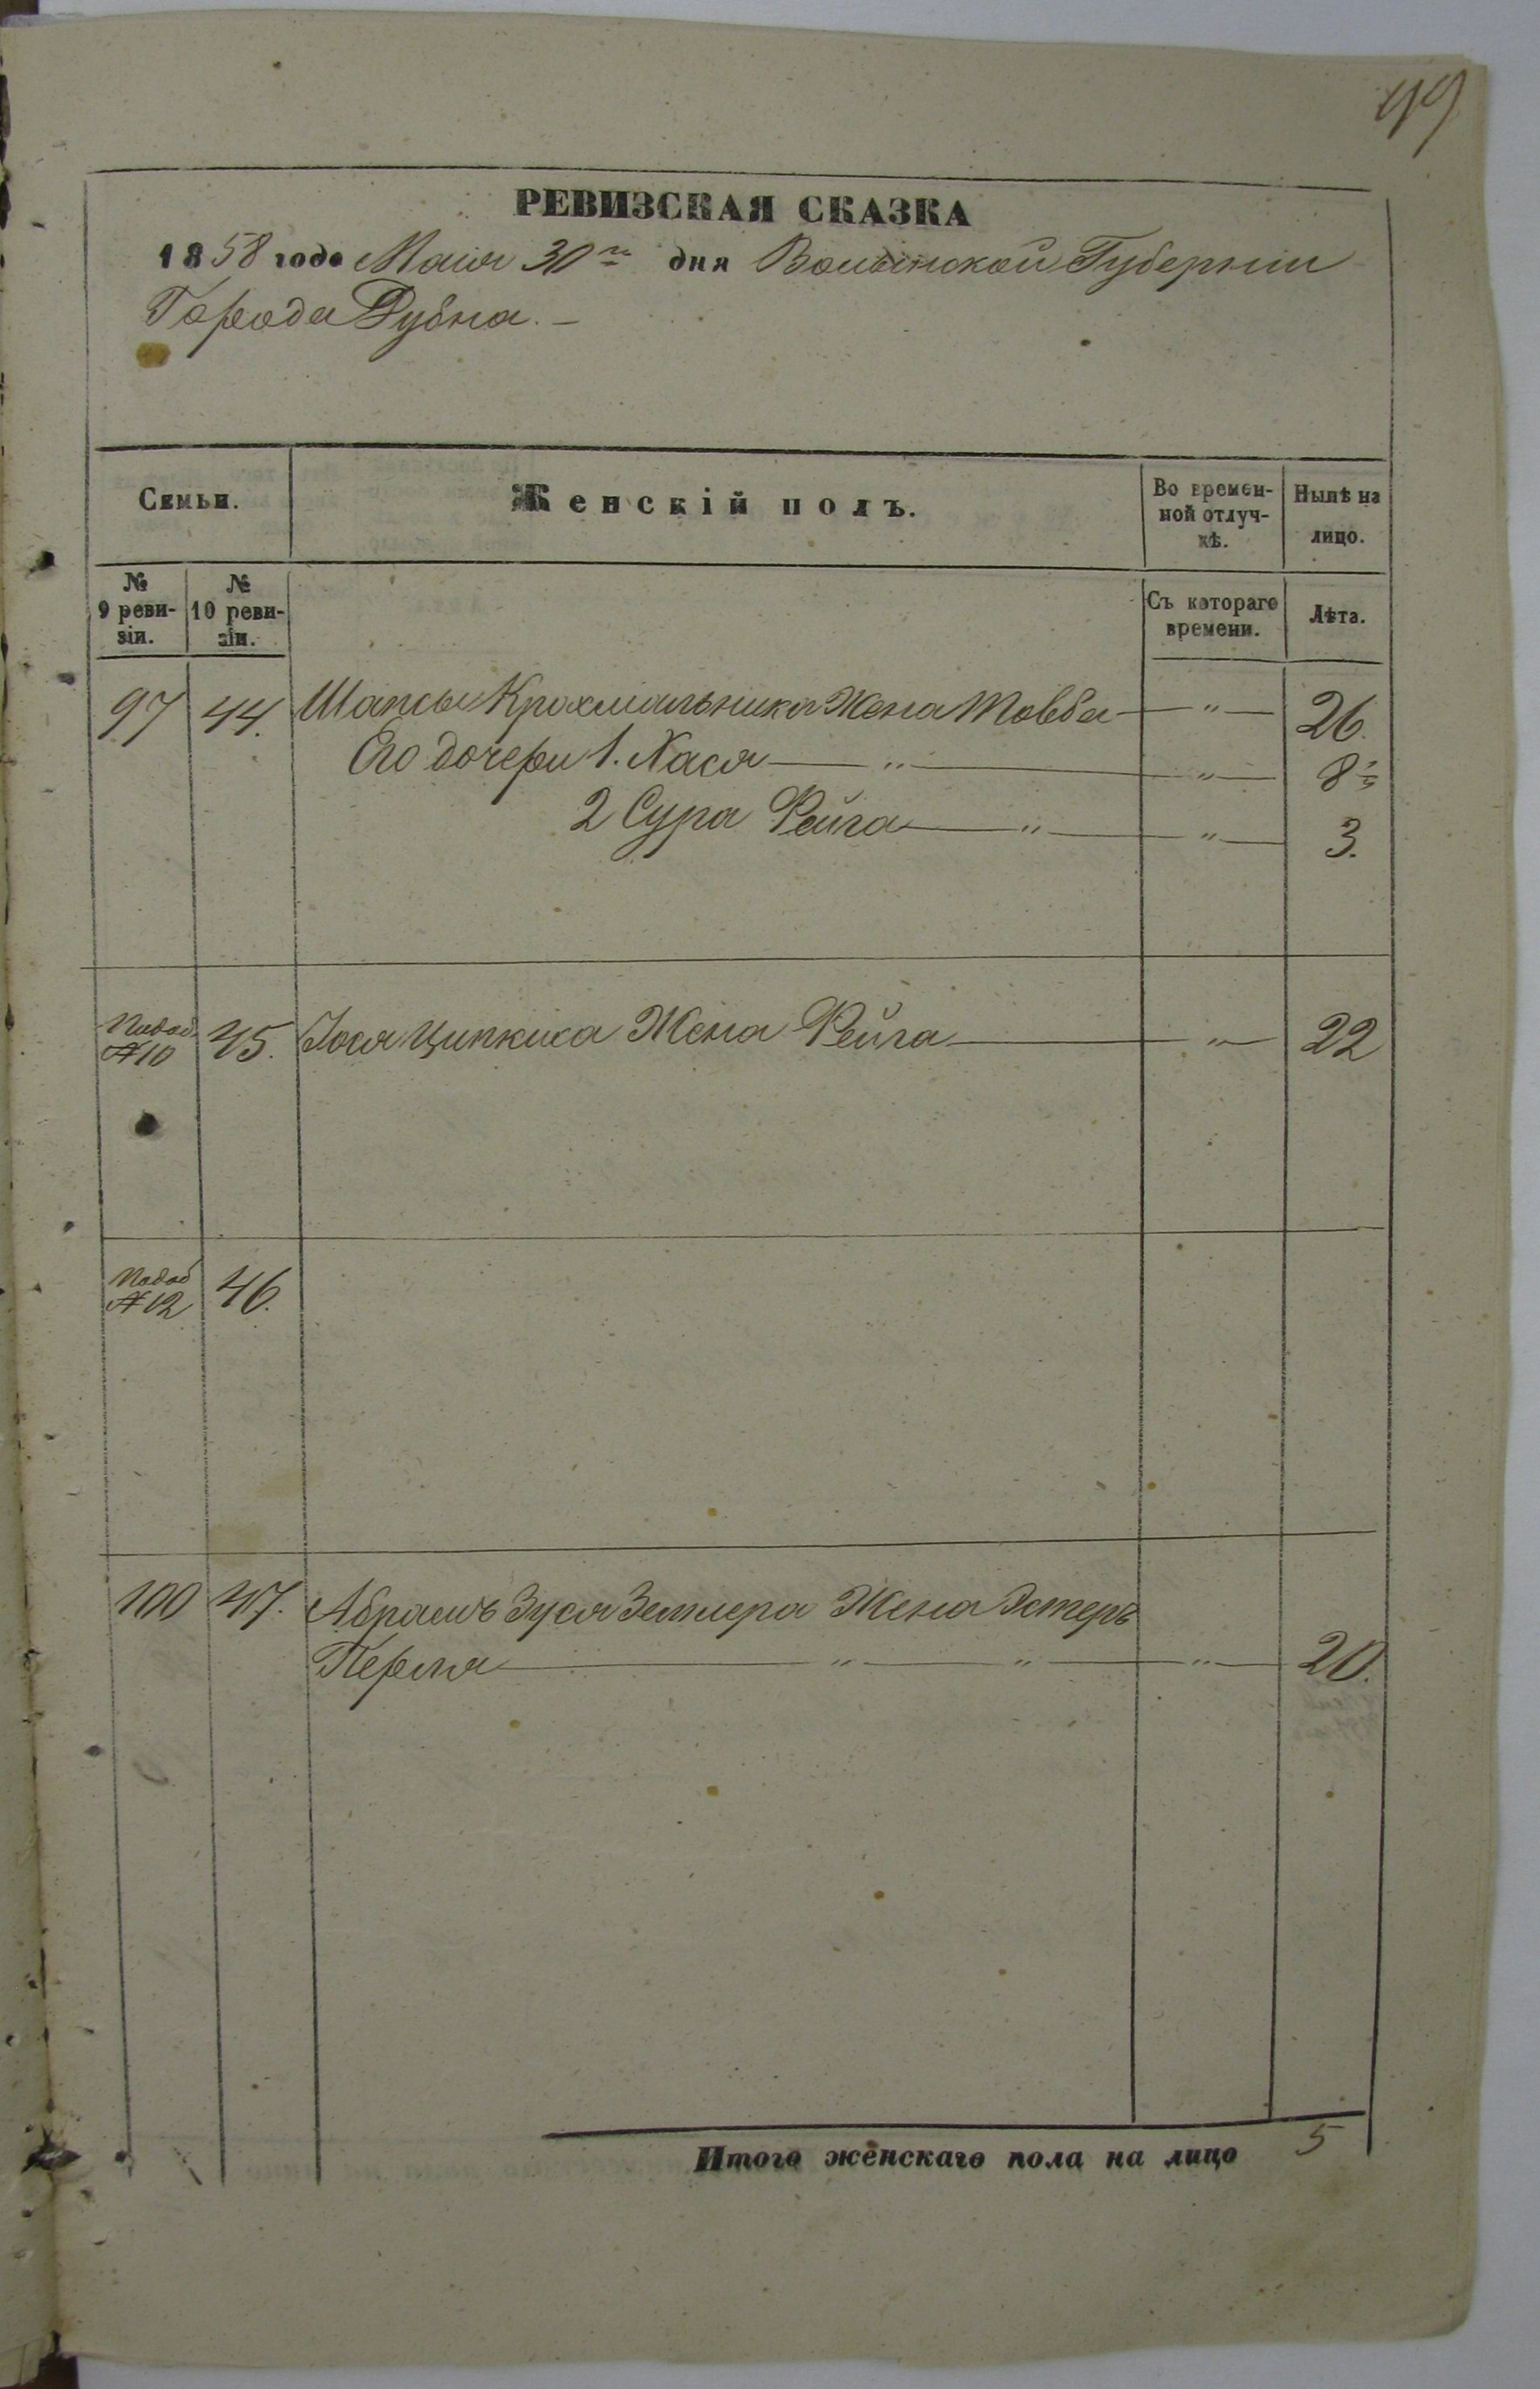 49
РЕВИЗСКАЯ СКАЗКА
1858 года Маия 30го дня Волынской Губерніи
Города Дубна. —
Семьи.
Женскій полъ.
Во времен-
ной отлуч-
кѣ.
Нынѣ на
лицо.
№
9 реви-
зіи.
№
10 реви-
зіи.
Съ котораго
времени.
Лѣта.
97 44. Шапсы Крохмальника Жена Товба — " — 26.
Его дочери 1. Хася — " — " — 8
2 Сура Фейга — " — " — 3.
№10 45. Іося Ципкиса Жена Фейга — " — 22
№12 46.
100 47. Абрамъ Зуся Землера Жена Эстеръ
Перля — " — " — " — 20.
Итого женскаго пола на лицо 5